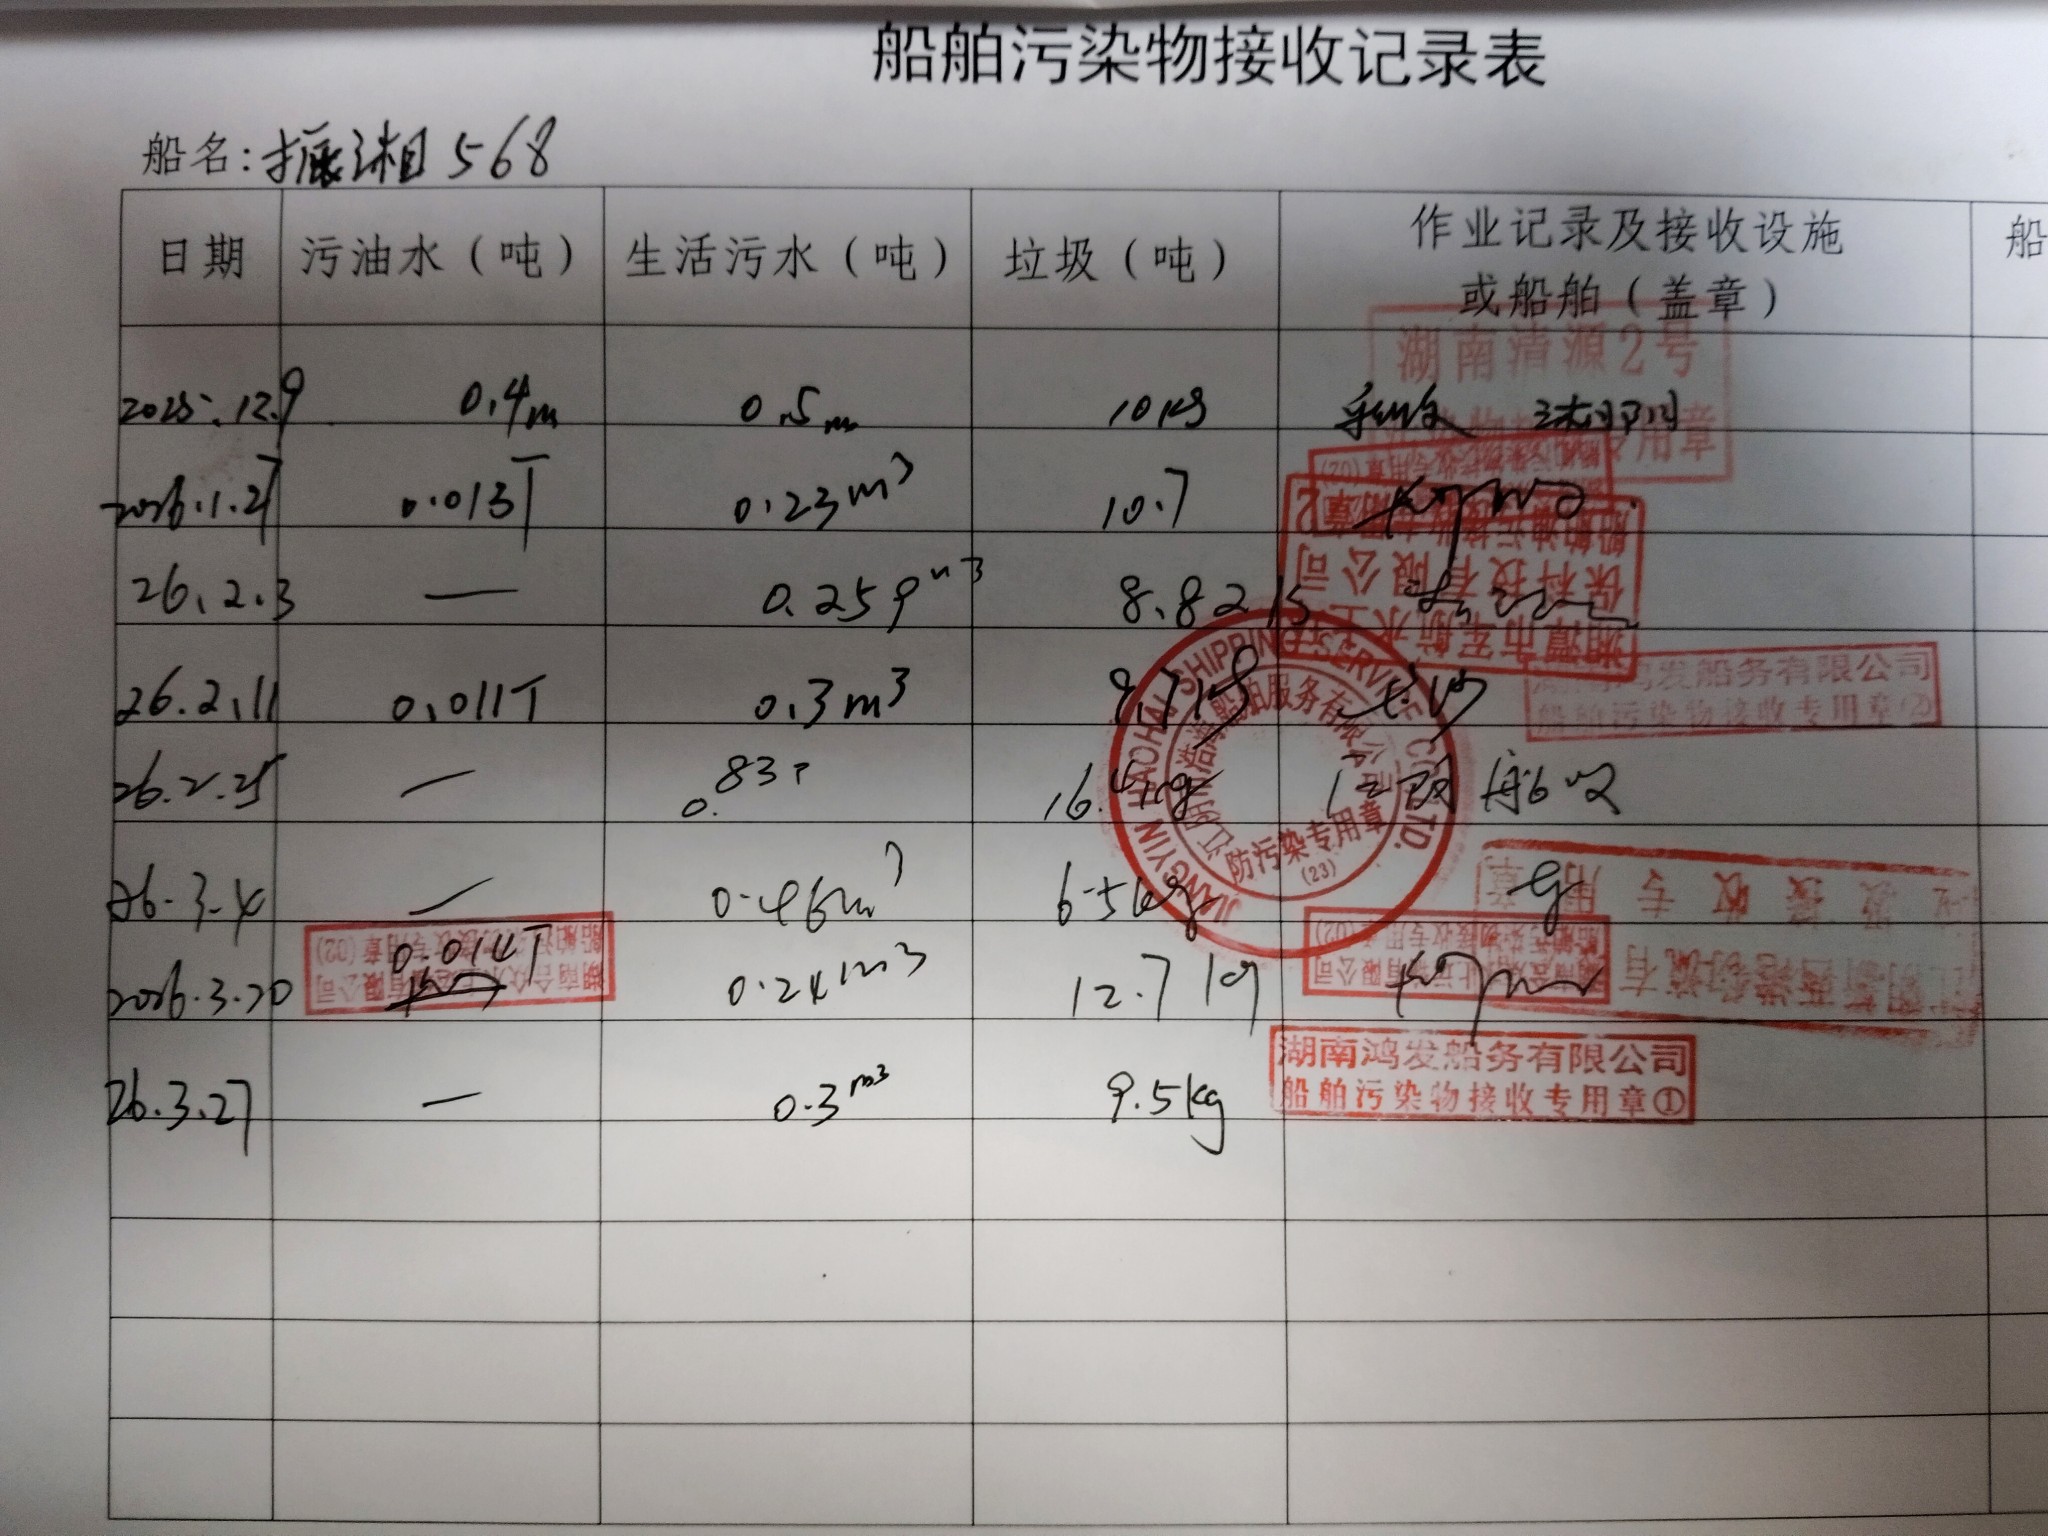 船舶污染物接收记录表
船名:振湘568
日期 污油水（吨） 生活污水（吨） 垃圾（吨） 作业记录及接收设施或船舶（盖章） 船
湖南清源2号
专用章
2025.12.9 0.4m 0.5m 10kg
2026.1.27 0.013T 0.23m³ 10.7
保科技有限公司
26.2.3 — 0.259m³ 8.82
26.2.11 0.011T 0.3m³ 9.7kg
鸿发船务有限公司
船舶污染物接收专用章②
JIANGYIN HAOHAI SHIPPING SERVICE CO.LTD.
江阴浩海船舶服务有限公司
防污染专用章
(23)
26.2.25 — 0.83 16.4kg 江阴 船收
26.3.4 — 0.46m³ 6.5kg
接收专用章
2026.3.20 0.014T 0.241m³ 12.7kg
26.3.27 — 0.3m³ 9.5kg
湖南鸿发船务有限公司
船舶污染物接收专用章①